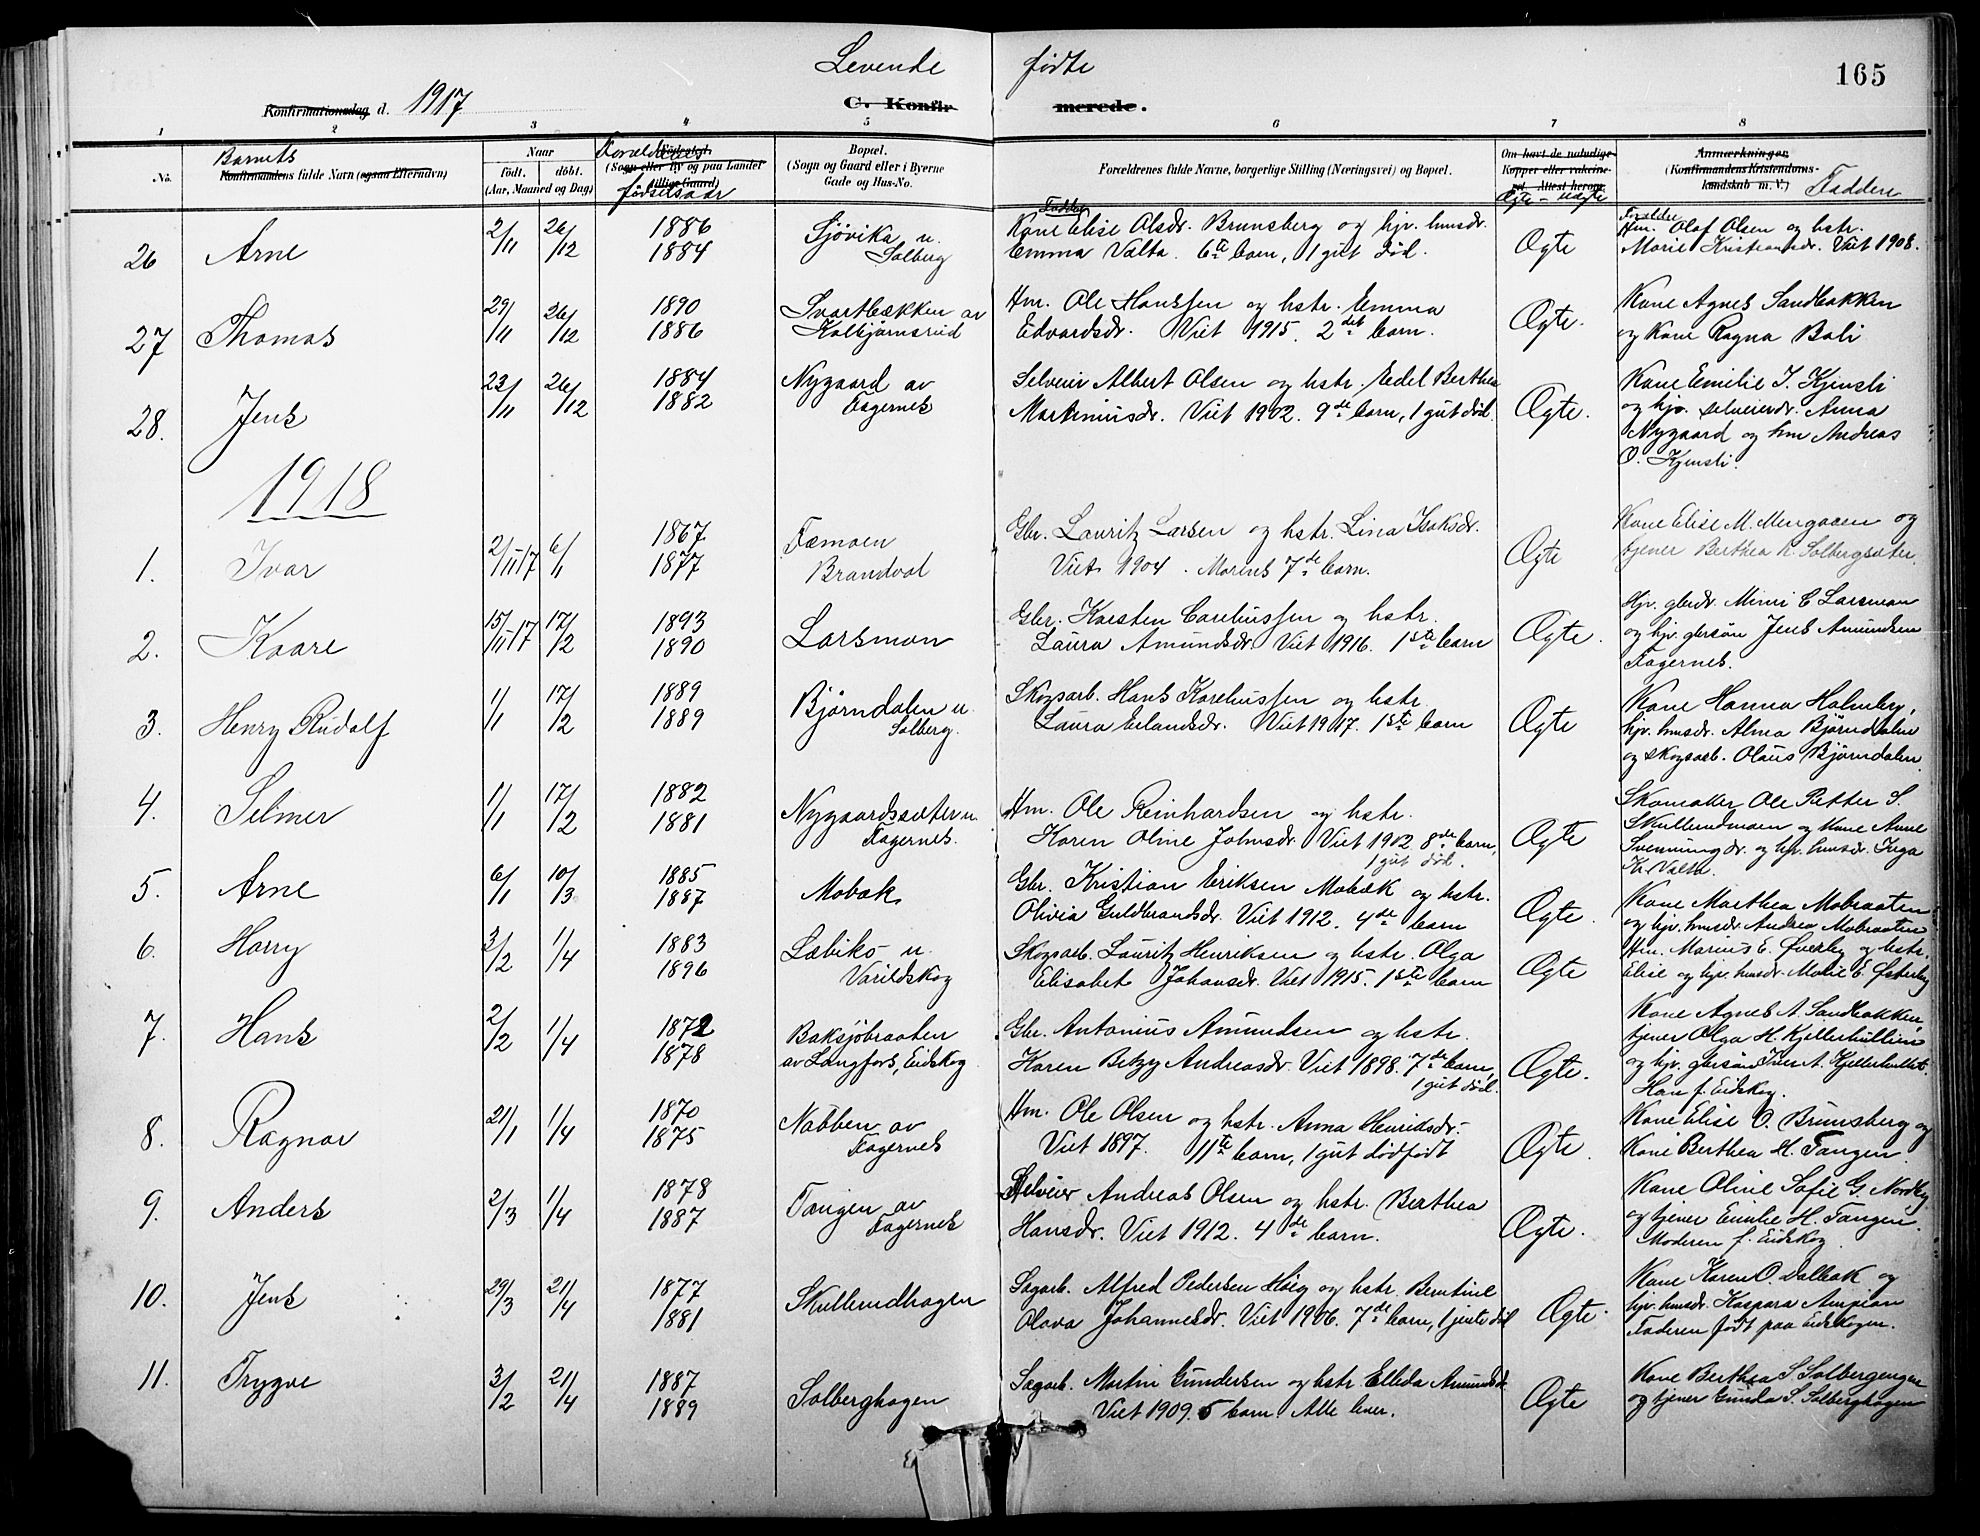 165
Levende fødte
Konfirmationsdag d. 1917
C. Konfirmerede.
1 2 3 4 5 6 7 8
No.
Barnets
Konfirmandens fulde Navn (ogsaa Efternavn)
Naar
født. døbt.
(Aar, Maaned og Dag)
Forældrenes
Fødested.
(Sogn eller By og paa Landet
tillige Gaard)
fødselsaar
Bopæl.
(Sogn og Gaard eller i Byerne
Gade og Hus-No.
Forældrenes fulde Navne, borgerlige Stilling (Næringsvei) og Bopæl.
Om havt de naturlige
Kopper eller vaccineret. Attest herom.
Ægte - uægte
Anmærkninger
(Konfirmandens Kristendoms-
kundskab m. V.)
Faddere
26 Arne 2/11 26/12 1886 1884 Sjövika u. Solberg
Fadder
Kone Elise Olsdr. Brunsberg og hjv. husdr.
Emma Valta. 6te barn, 1 gut död.
Ægte
Forældre
Hm. Olaf Olsen og hstr.
Marie Kristiansdr. Viet 1908.
27 Thomas 29/11 26/12 1890 1886 Svartbækken av Kolbjørnsrud
Hm. Ole Hanssen og hstr. Emma
Edvardsdr. Viet 1915. 2det barn.
Ægte.
Kone Agnes Sandbakken
og Kone Ragna Bali
28. Jens 23/11 26/12 1884 1882 Nygaard av Fagernes
Selveier Albert Olsen og hstr. Edel Berthea
Martiniusdr. Viet 1902. 9de barn, 1 gut död.
Ægte.
Kone Emilie J. Kjensli
og hjv. selveierdr. Anna
Nygaard og hm Andreas
O. Kjensli.
1918
1. Ivar 2/11 17 6/1 1867 1877 Tæmoen Brandvol
Gbr. Lauritz Larsen og hstr. Lina Isaksdr.
Viet 1904. Morens 7de barn.
Ægte
Kone Elise M. Mengaaen og
tjener Berthea K. Solbergsæter.
2. Kaare 15/11 17 17/2 1893 1890 Larsmon
Gbr. Karsten Careliussen og hstr.
Laura Amundsdr. Viet 1916. 1ste barn
Ægte.
Hjv. gbrdr. Mimi C Larsmon
og hjv. gbrsön Jens Amundsen
Fagernes.
3. Henry Rudolf 1/1 17/2 1889 1889 Björndalen u. Solberg.
Skogsarb. Hans Kareliussen og hstr.
Laura Erlandsdr. Viet 1917. 1ste barn
Ægte
Kone Hanna Holmby,
hjv. husdr. Alma Björndalen
og skogsarb. Olaus Björndalen.
4. Selmer 1/1 17/2 1882 1881 Nygaardssæter u. Fagernes.
Hm. Ole Reinhardsen og hstr.
Karen Oline Johnsdr. Viet 1902. 8de barn,
1 gut död.
Ægte
Skomaker Ole Petter S.
Skullerudmoen og kone Anne
Svenningdr. og hjv. husdr. Inga
K. Valta.
5. Arne 6/1 10/3 1885 1887 Mobæk
Gbr. Kristian Eriksen Mobæk og hstr.
Olivia Guldbrandsdr. Viet 1912. 4de barn
Ægte.
Kone Marthea Mobraaten
og hjv. husdr. Andrea Mobraaten
6. Harry 3/2 1/4 1883 1896 Labiko u. Varildskog
Skogsarb. Lauritz Henriksen og hstr. Olga
Elisabet Johansdr. Viet 1915. 1ste barn
Ægte
Hm. Marius E. Øverby og hstr.
Elise og hjv. husdr. Malie E. Østerby
7. Hans 2/2 1/4 1872 1878 Baksjöbraaten av Langfors, Eidskog
Gbr. Antonius Amundsen og hstr.
Karen Betzy Andreasdr. Viet 1898. 7de barn,
1 gut död.
Ægte.
Kone Agnes A. Sandbakken,
tjener Olga H. Kjellerhullien
og hjv. gbrsön Iver A. Kjellerhullet.
Han f. Eidskog.
8. Ragnar 21/1 1/4 1870 1875 Nabben av Fagernes
Hm. Ole Olsen og hstr. Anna Henriksdr.
Viet 1897. 11te barn, 1 gut dödfödt
Ægte.
Kone Elise O. Brunsberg og
Kone Berthea H. Tangen
9. Anders 2/3 1/4 1878 1887 Tangen av Fagernes
Selveier Andreas Olsen og hstr. Berthea
Hansdr. Viet 1912. 4de barn.
Ægte.
Kone Oline Sofie G. Nordby
og tjener Emilie H. Tangen.
Moderen f. Eidskog
10. Jens 29/3 21/4 1877 1881 Skullerudhagen
Sagarb. Alfred Pedersen Höig og hstr. Berntine
Olava Johannesdr. Viet 1906. 7de barn, 1 jente död
Ægte.
Kone Karen O. Dalbak og
hjv. husdr. Kaspara Ampian
Faderen født paa Eidskogen.
11. Trygve 3/2 21/4 1887 1889 Solberghagen
Sagarb. Martin Gundersen og hstr Elleda Amundsdr.
Viet 1909. 5 barn. Alle lever.
Ægte
Kone Berthea S Solbergengen
og tjener Gunda S. Solberghagen